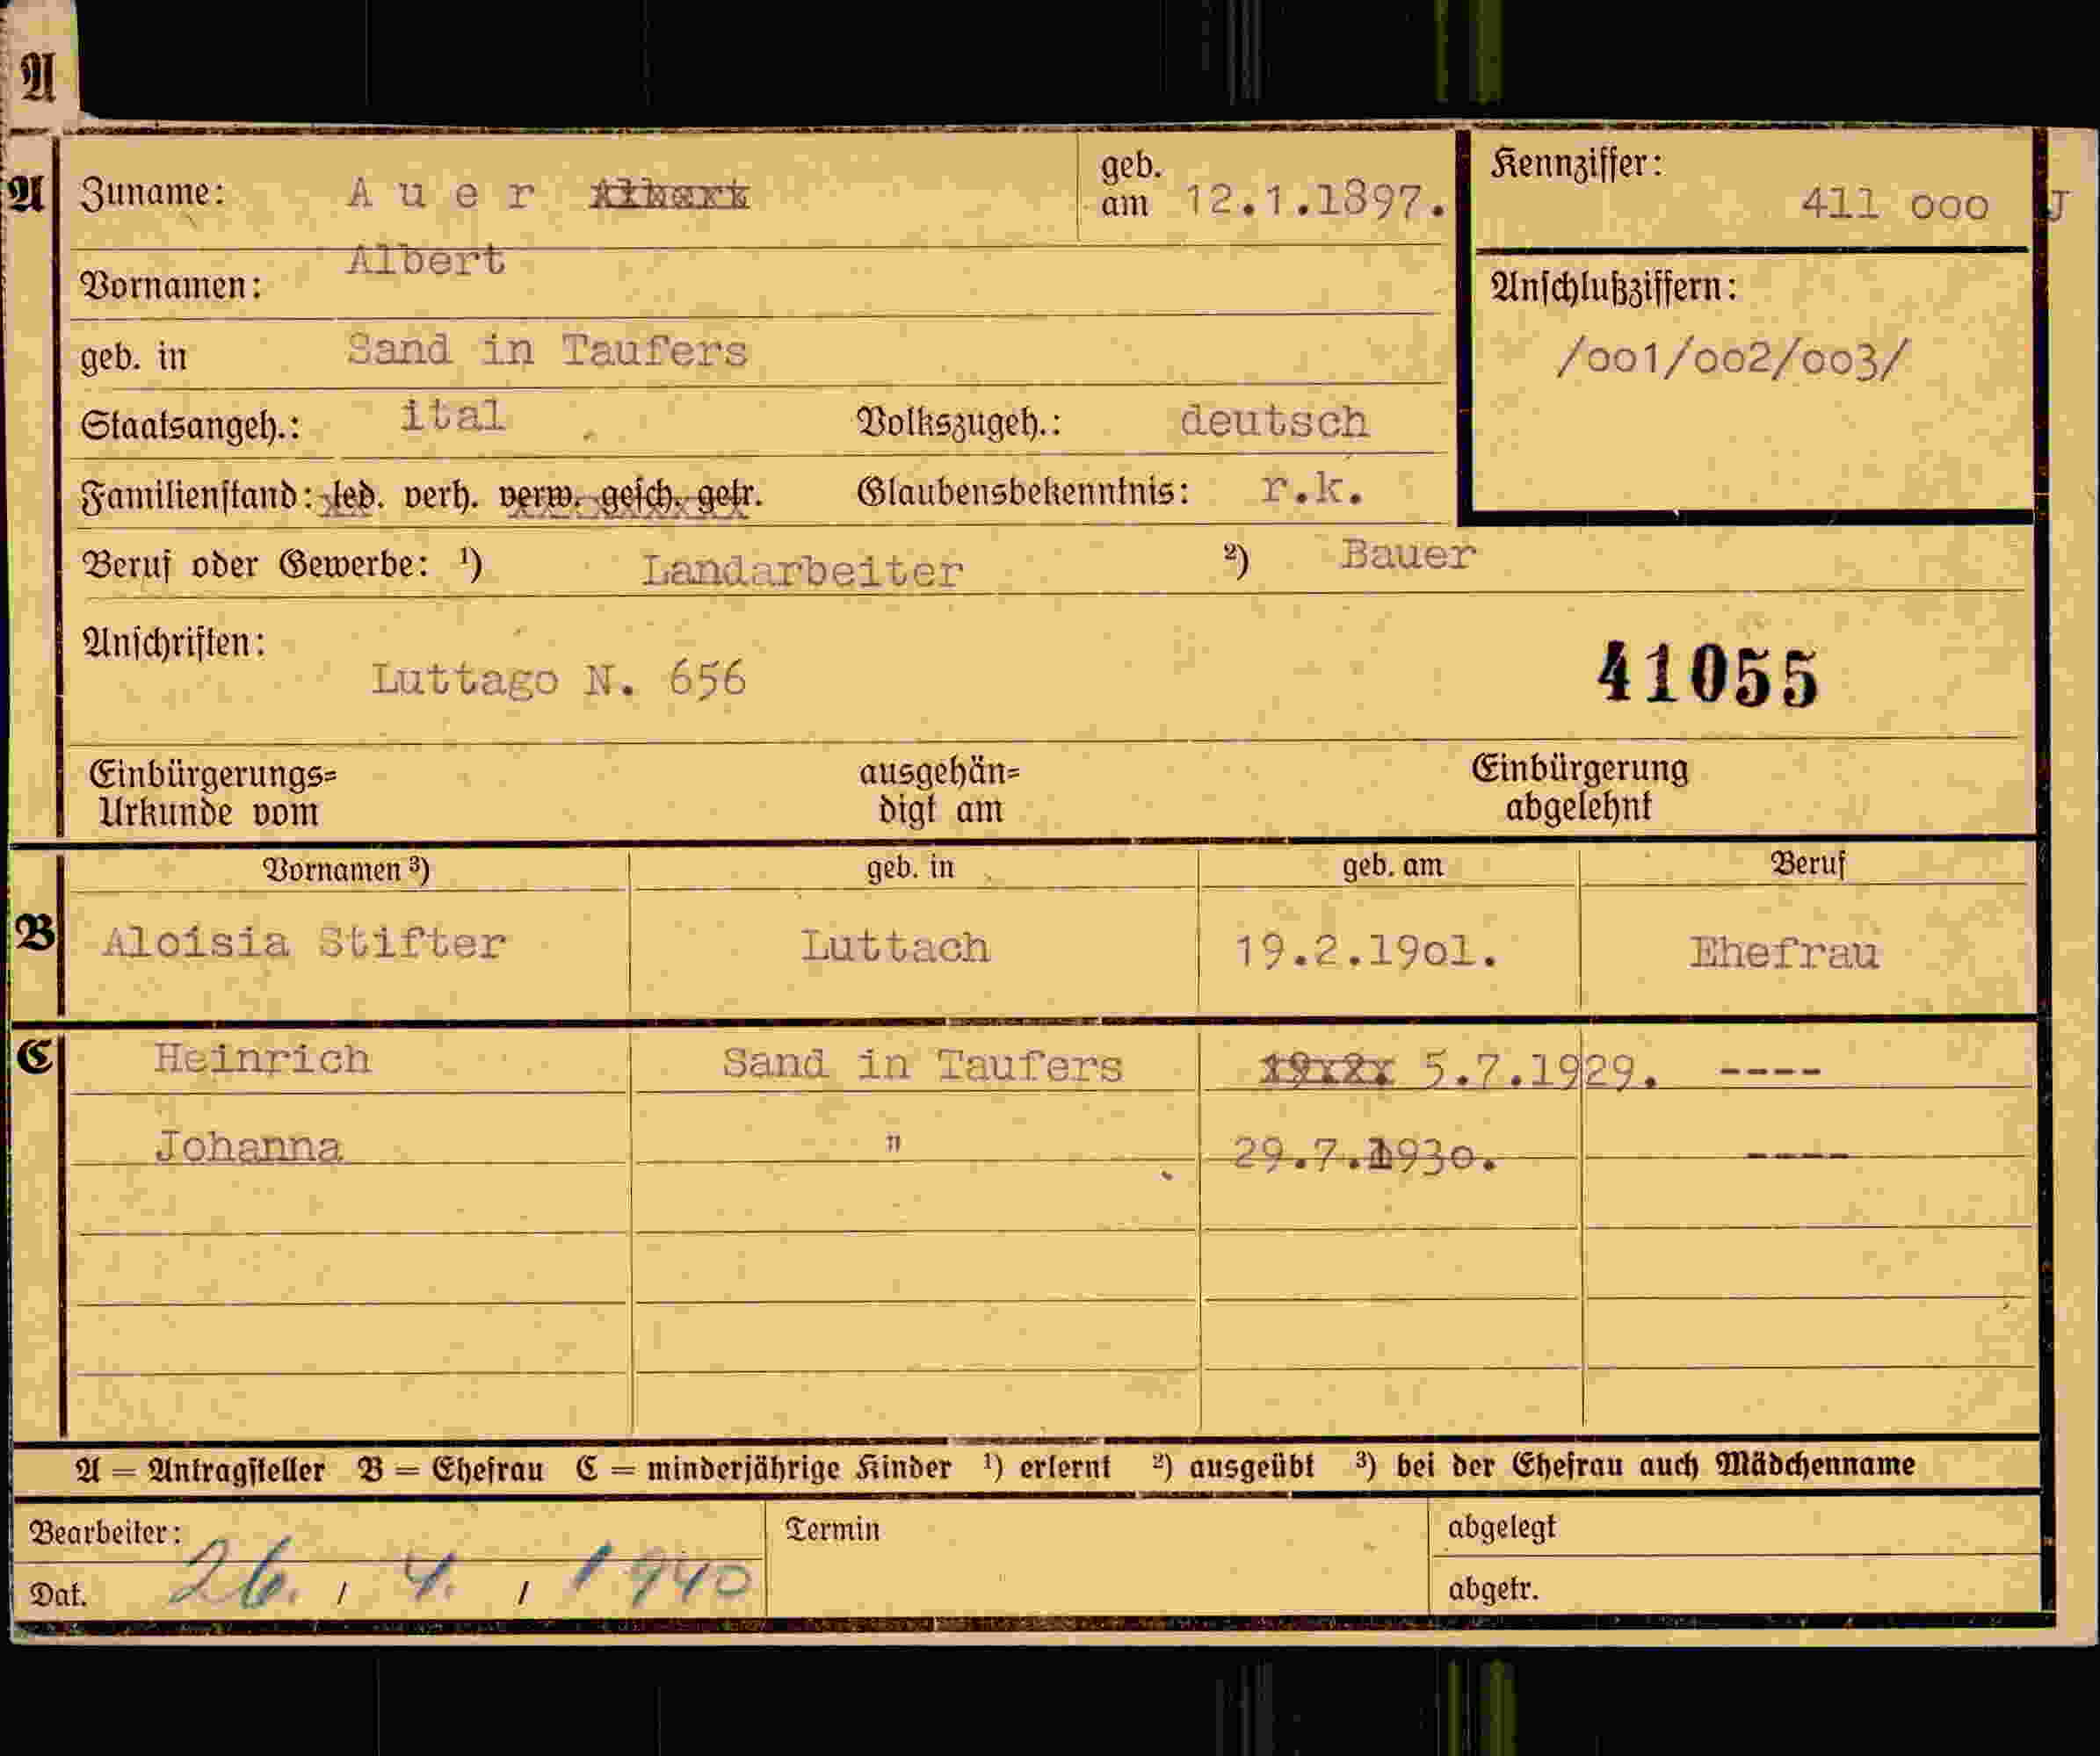 A
A Zuname: A u e r Albert geb. am 12.1.1897. Kennziffer: 411 000 J
Vornamen: Albert
Anschlußziffern:
/001/002/003/
geb. in Sand in Taufers
Staatsangeh.: ital Volkszugeh.: deutsch
Familienstand: led. verh. verw. gesch. getr. Glaubensbekenntnis: r.k.
Beruf oder Gewerbe: ¹) Landarbeiter ²) Bauer
Anschriften:
Luttago N. 656 41055
Einbürgerungs= ausgehän= Einbürgerung
Urkunde vom digt am abgelehnt
Vornamen ³) geb. in geb. am Beruf
B Aloisia Stifter Luttach 19.2.19o1. Ehefrau
C Heinrich Sand in Taufers 5.7.1929. ----
Johanna " 29.7.193o. ----
A = Antragsteller B = Ehefrau C = minderjährige Kinder ¹) erlernt ²) ausgeübt ³) bei der Ehefrau auch Mädchenname
Bearbeiter: Termin abgelegt
Dat. 26. / 4. / 1940 abgetr.